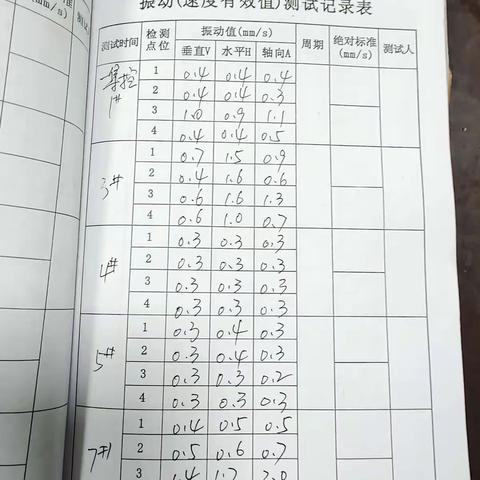 振动(速度有效值)测试记录表
测试时间 检测点位 振动值(mm/s) 周期 绝对标准(mm/s) 测试人
垂直V 水平H 轴向A
集控 1# 1 0.4 0.4 0.4
2 0.4 0.4 0.3
3 1.0 0.9 1.1
4 0.4 0.4 0.5
3# 1 0.7 1.5 0.9
2 0.4 1.6 0.6
3 0.6 1.6 1.3
4 0.6 1.0 0.7
4# 1 0.3 0.3 0.3
2 0.3 0.3 0.3
3 0.3 0.3 0.3
4 0.3 0.3 0.3
5# 1 0.3 0.4 0.3
2 0.3 0.4 0.3
3 0.3 0.3 0.2
4 0.3 0.3 0.3
7# 1 0.4 0.5 0.5
2 0.5 0.6 0.7
3